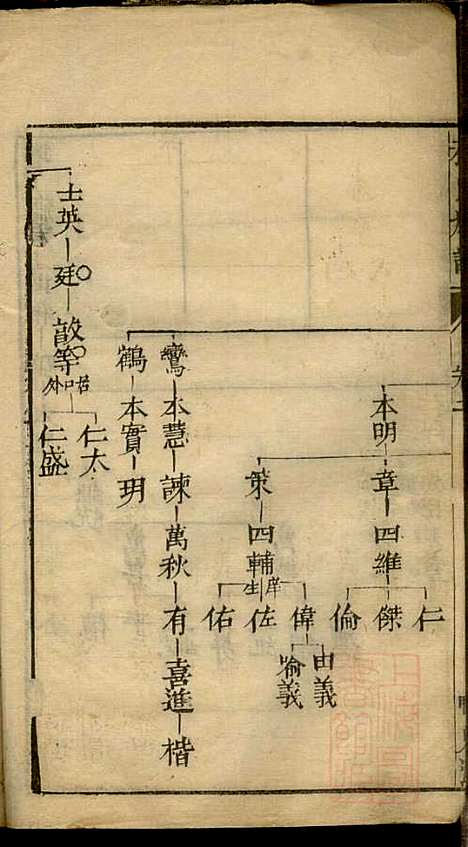 本明 章 四維
仁
傑
倫
策 四輔
庠生
偉
佐
佑
由義
喻義
鸞 本慧 諫 萬秋 有 喜進 楷
鶴 本實 玥
士英 廷 敔等
居口外
仁太
仁盛